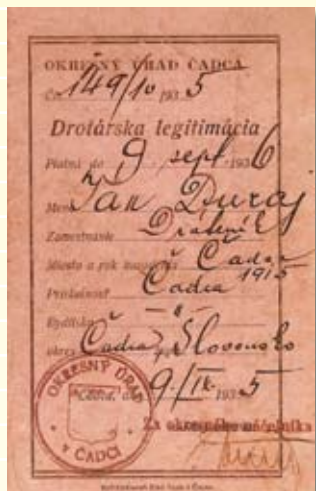 OKRESNÝ ÚRAD ČADCA
Čís. 149/10 1935
Drotárska legitimácia
Platná do 9. sept. 1936
Meno Ján Ďuraj
Zamestnanie Drátenik
Miesto a rok narodenia Čadca 1915
Príslušnosť Čadca
Bydlisko -"-
okres Čadca, Slovensko
Čadca, dňa 9./IX. 1935
OKRESNÝ ÚRAD V ČADCI
Za okresného náčelníka